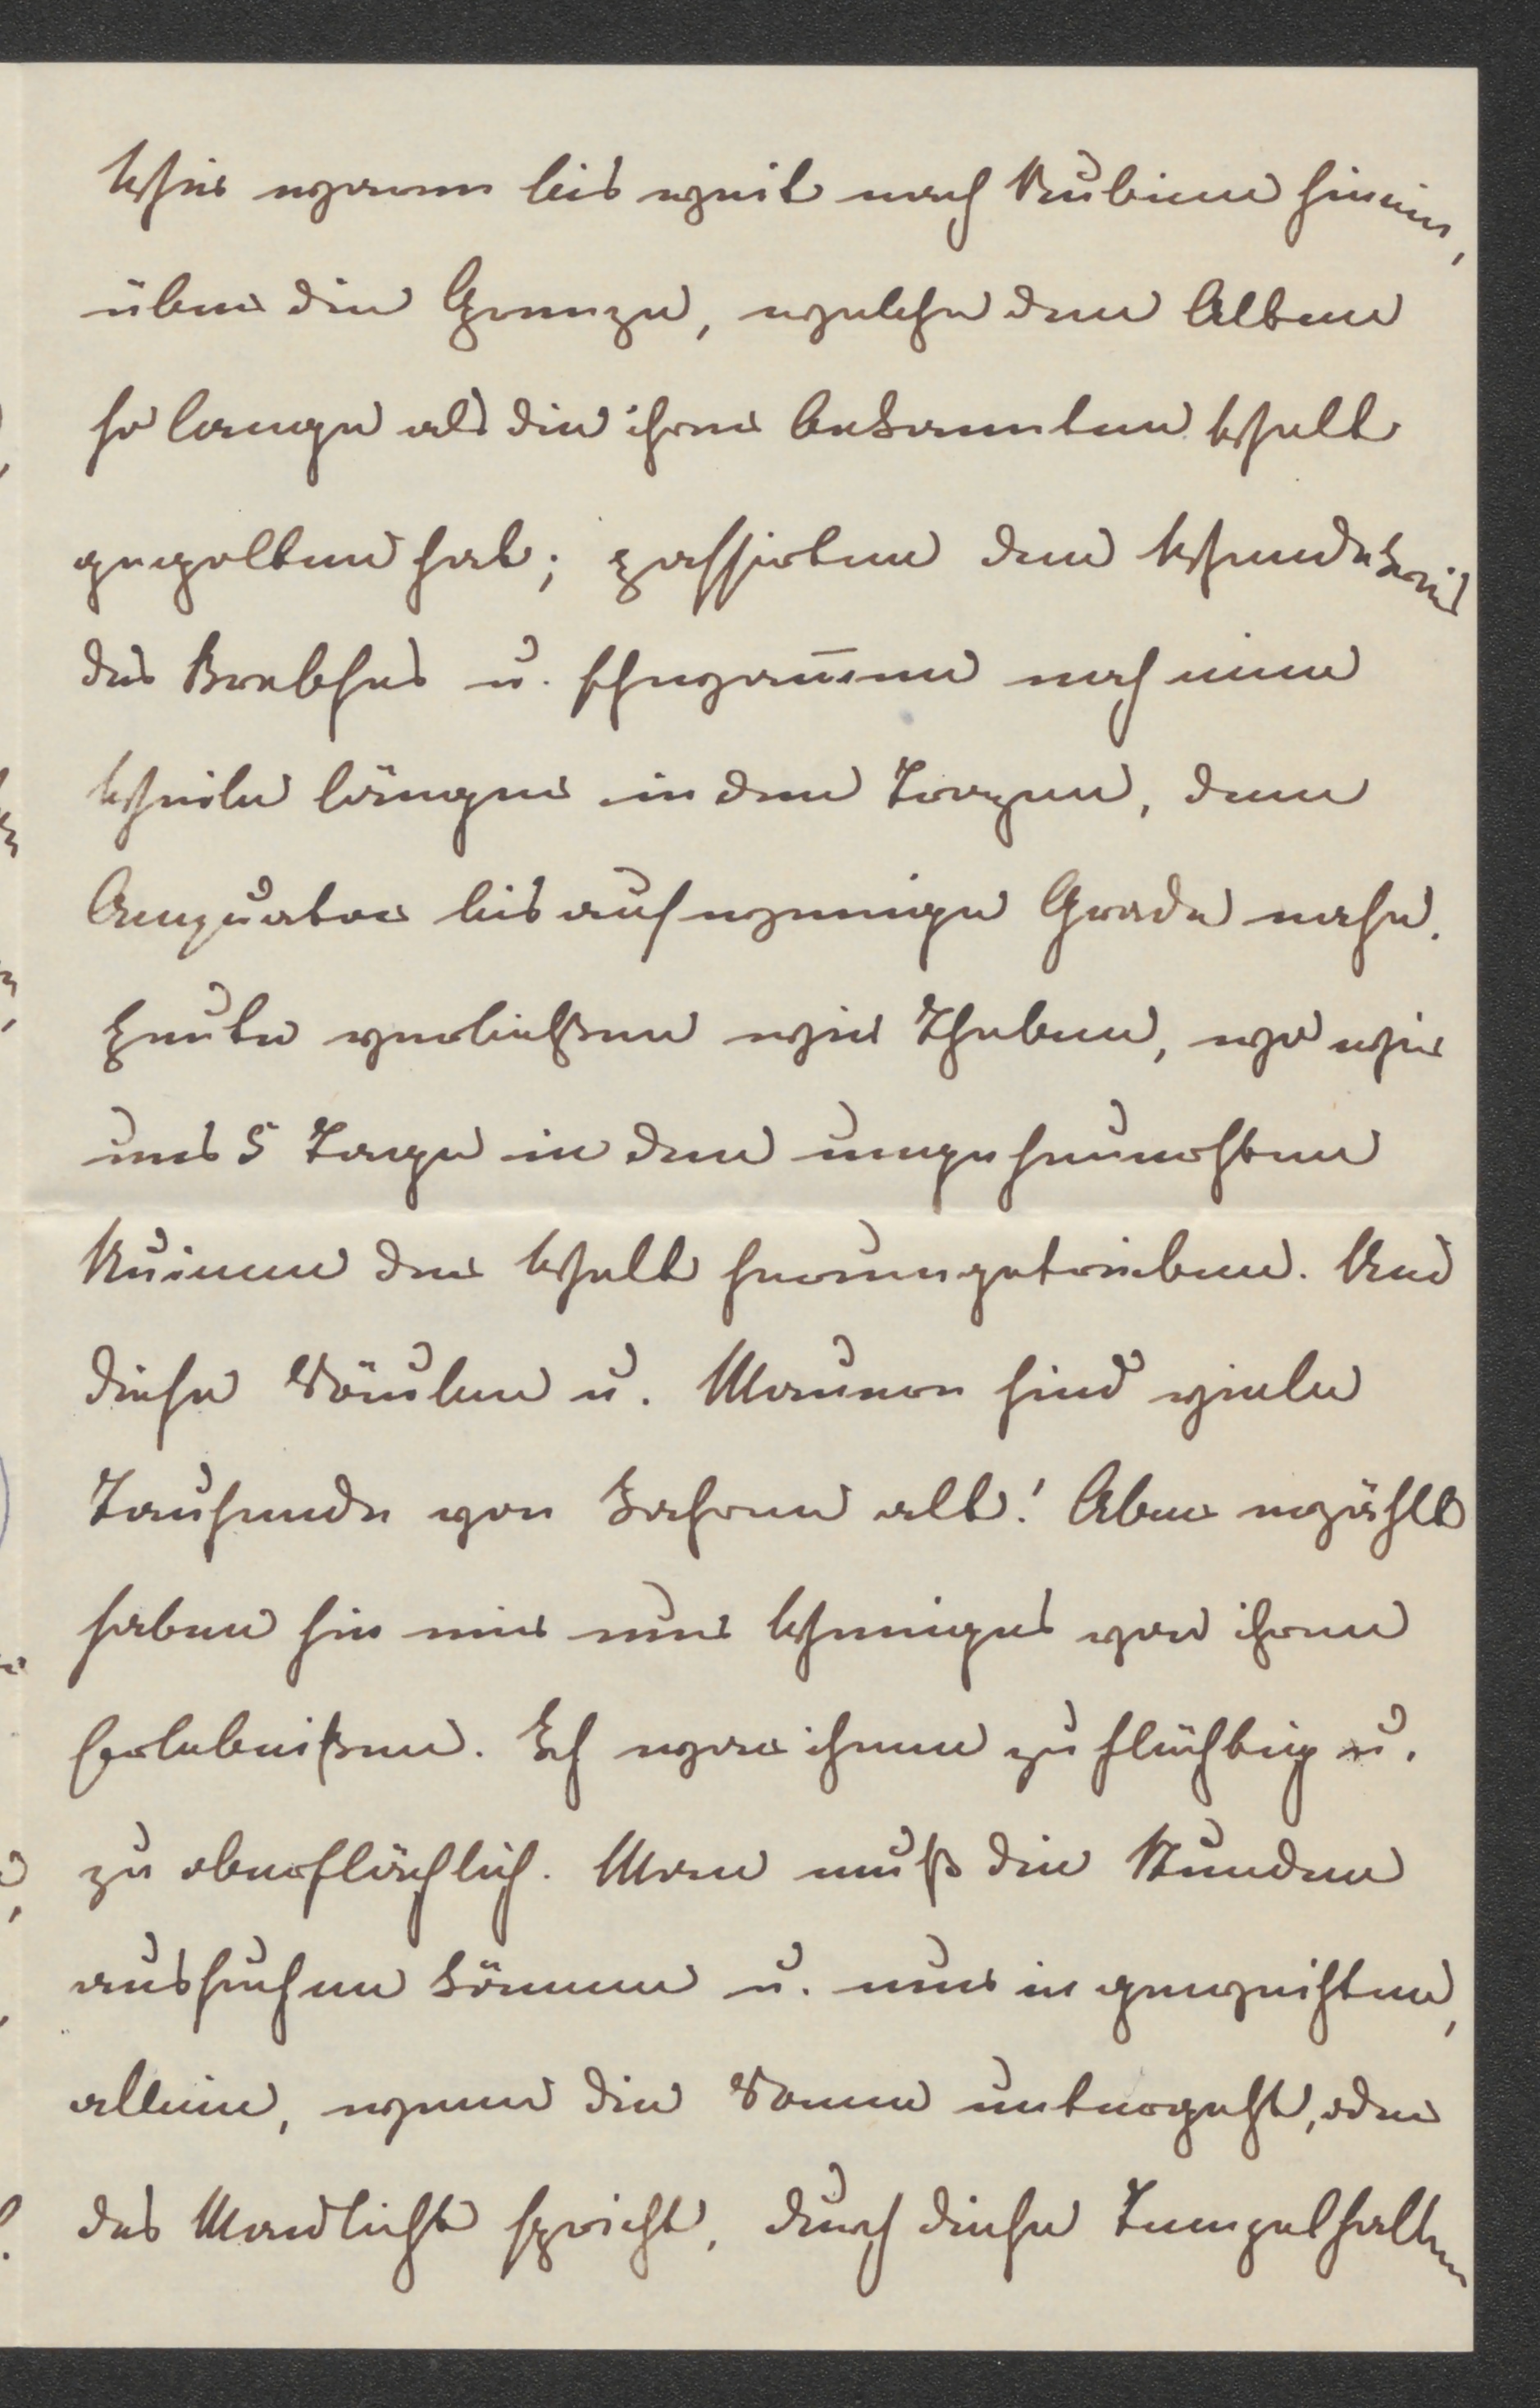 Wir waren bis weit nach Nubien hinein,
über die Grenze, welche den Alten
so lange als die ihrer bekannten Welt
gegolten hat; passirten den Wendekreis
des Krebses u. schwammen noch eine
Weile länger in den Tropen, dem
Aequator bis auf wenige Grade nahe.
Heute verließen wir Theben, wo wir
uns 5 Tage in den ungeheuersten
Ruinen der Welt herumgetrieben. Und
diese Säulen u. Mauern sind viele
Tausende von Jahren alt! Aber erzählt
haben sie mir nur Weniges von ihren
Erlebnißen. Ich war ihnen zu flüchtig u.
zu oberflächlich. Man muß die Stunden
aussuchen können u. nur in geweihten,
allein, wenn die Sonne untergeht, oder
das Mondlicht spricht, durch diese Tempelhallen